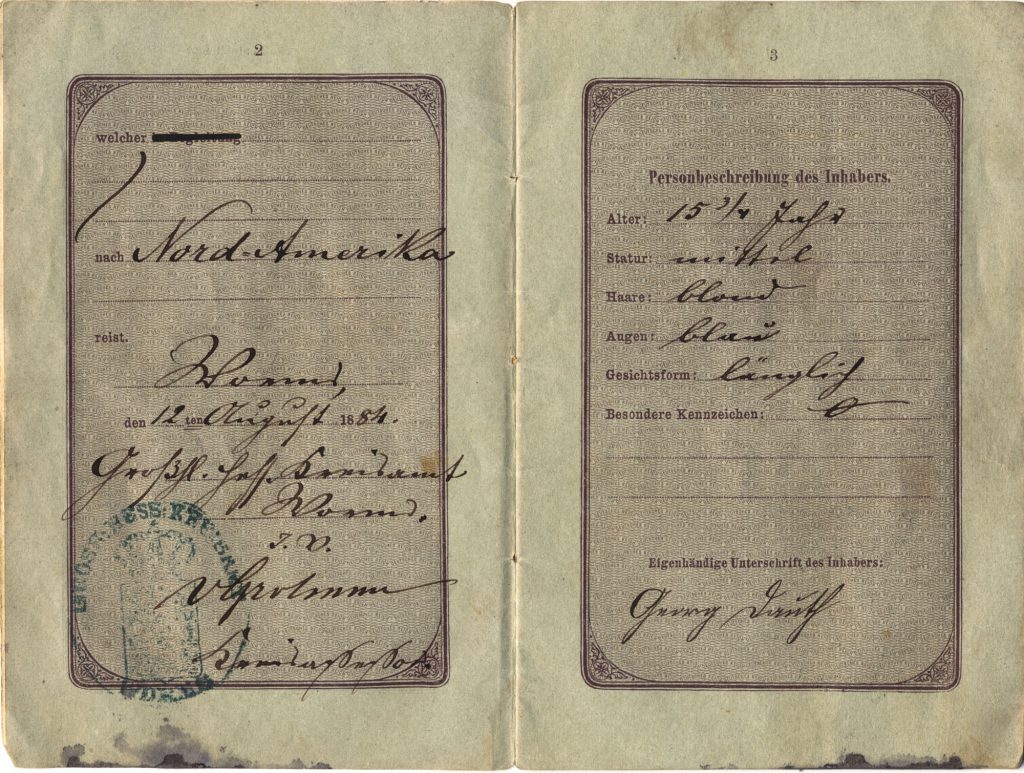 2
welcher in Begleitung
nach Nord-Amerika
reist.
Worms,
den 12 ten August 1884.
Großhl. Hess. Kreisamt
Worms.
I. V.
Kreisassessor.
GROSH. HESS. KREISAMT
WORMS
3
Personbeschreibung des Inhabers.
Alter: 15 3/4 Jahr
Statur: mittel
Haare: blond
Augen: blau
Gesichtsform: länglich
Besondere Kennzeichen: O
Eigenhändige Unterschrift des Inhabers:
Georg Dauth